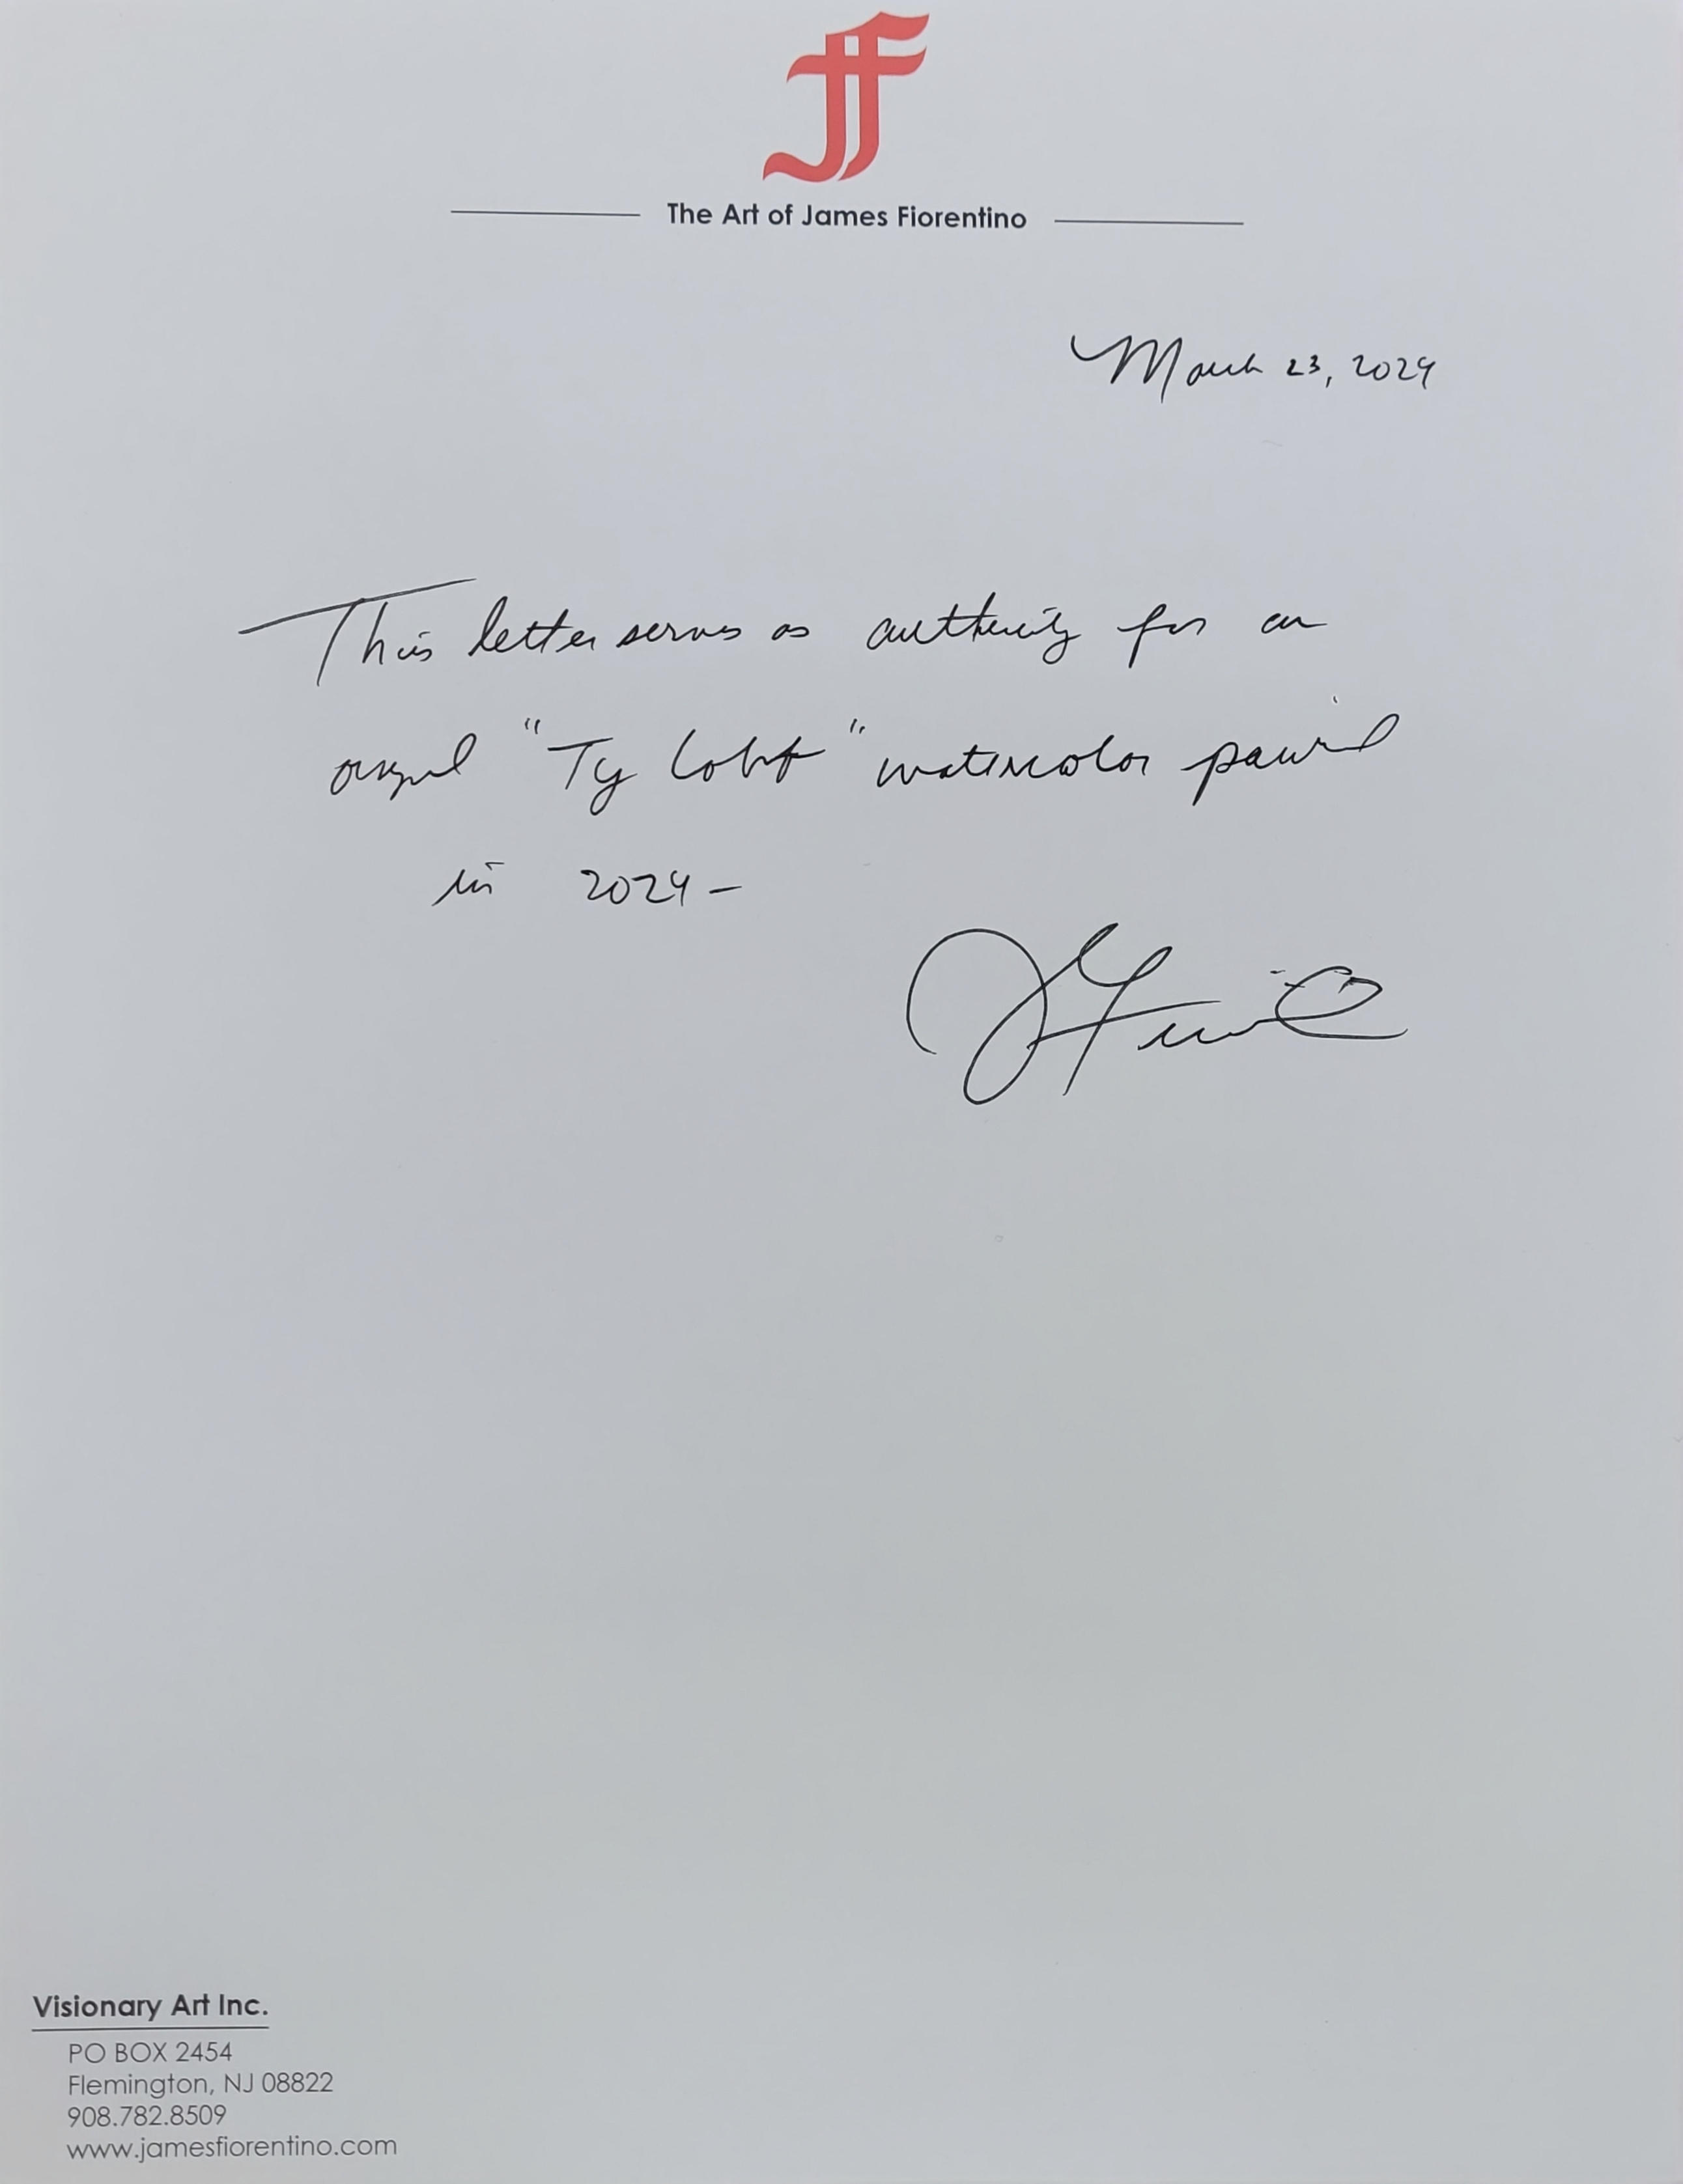 JF
The Art of James Fiorentino
March 23, 2024
This letter serves as authenticity for an
original "Ty Cobb" watercolor painted
in 2024 –
Visionary Art Inc.
PO BOX 2454
Flemington, NJ 08822
908.782.8509
www.jamesfiorentino.com